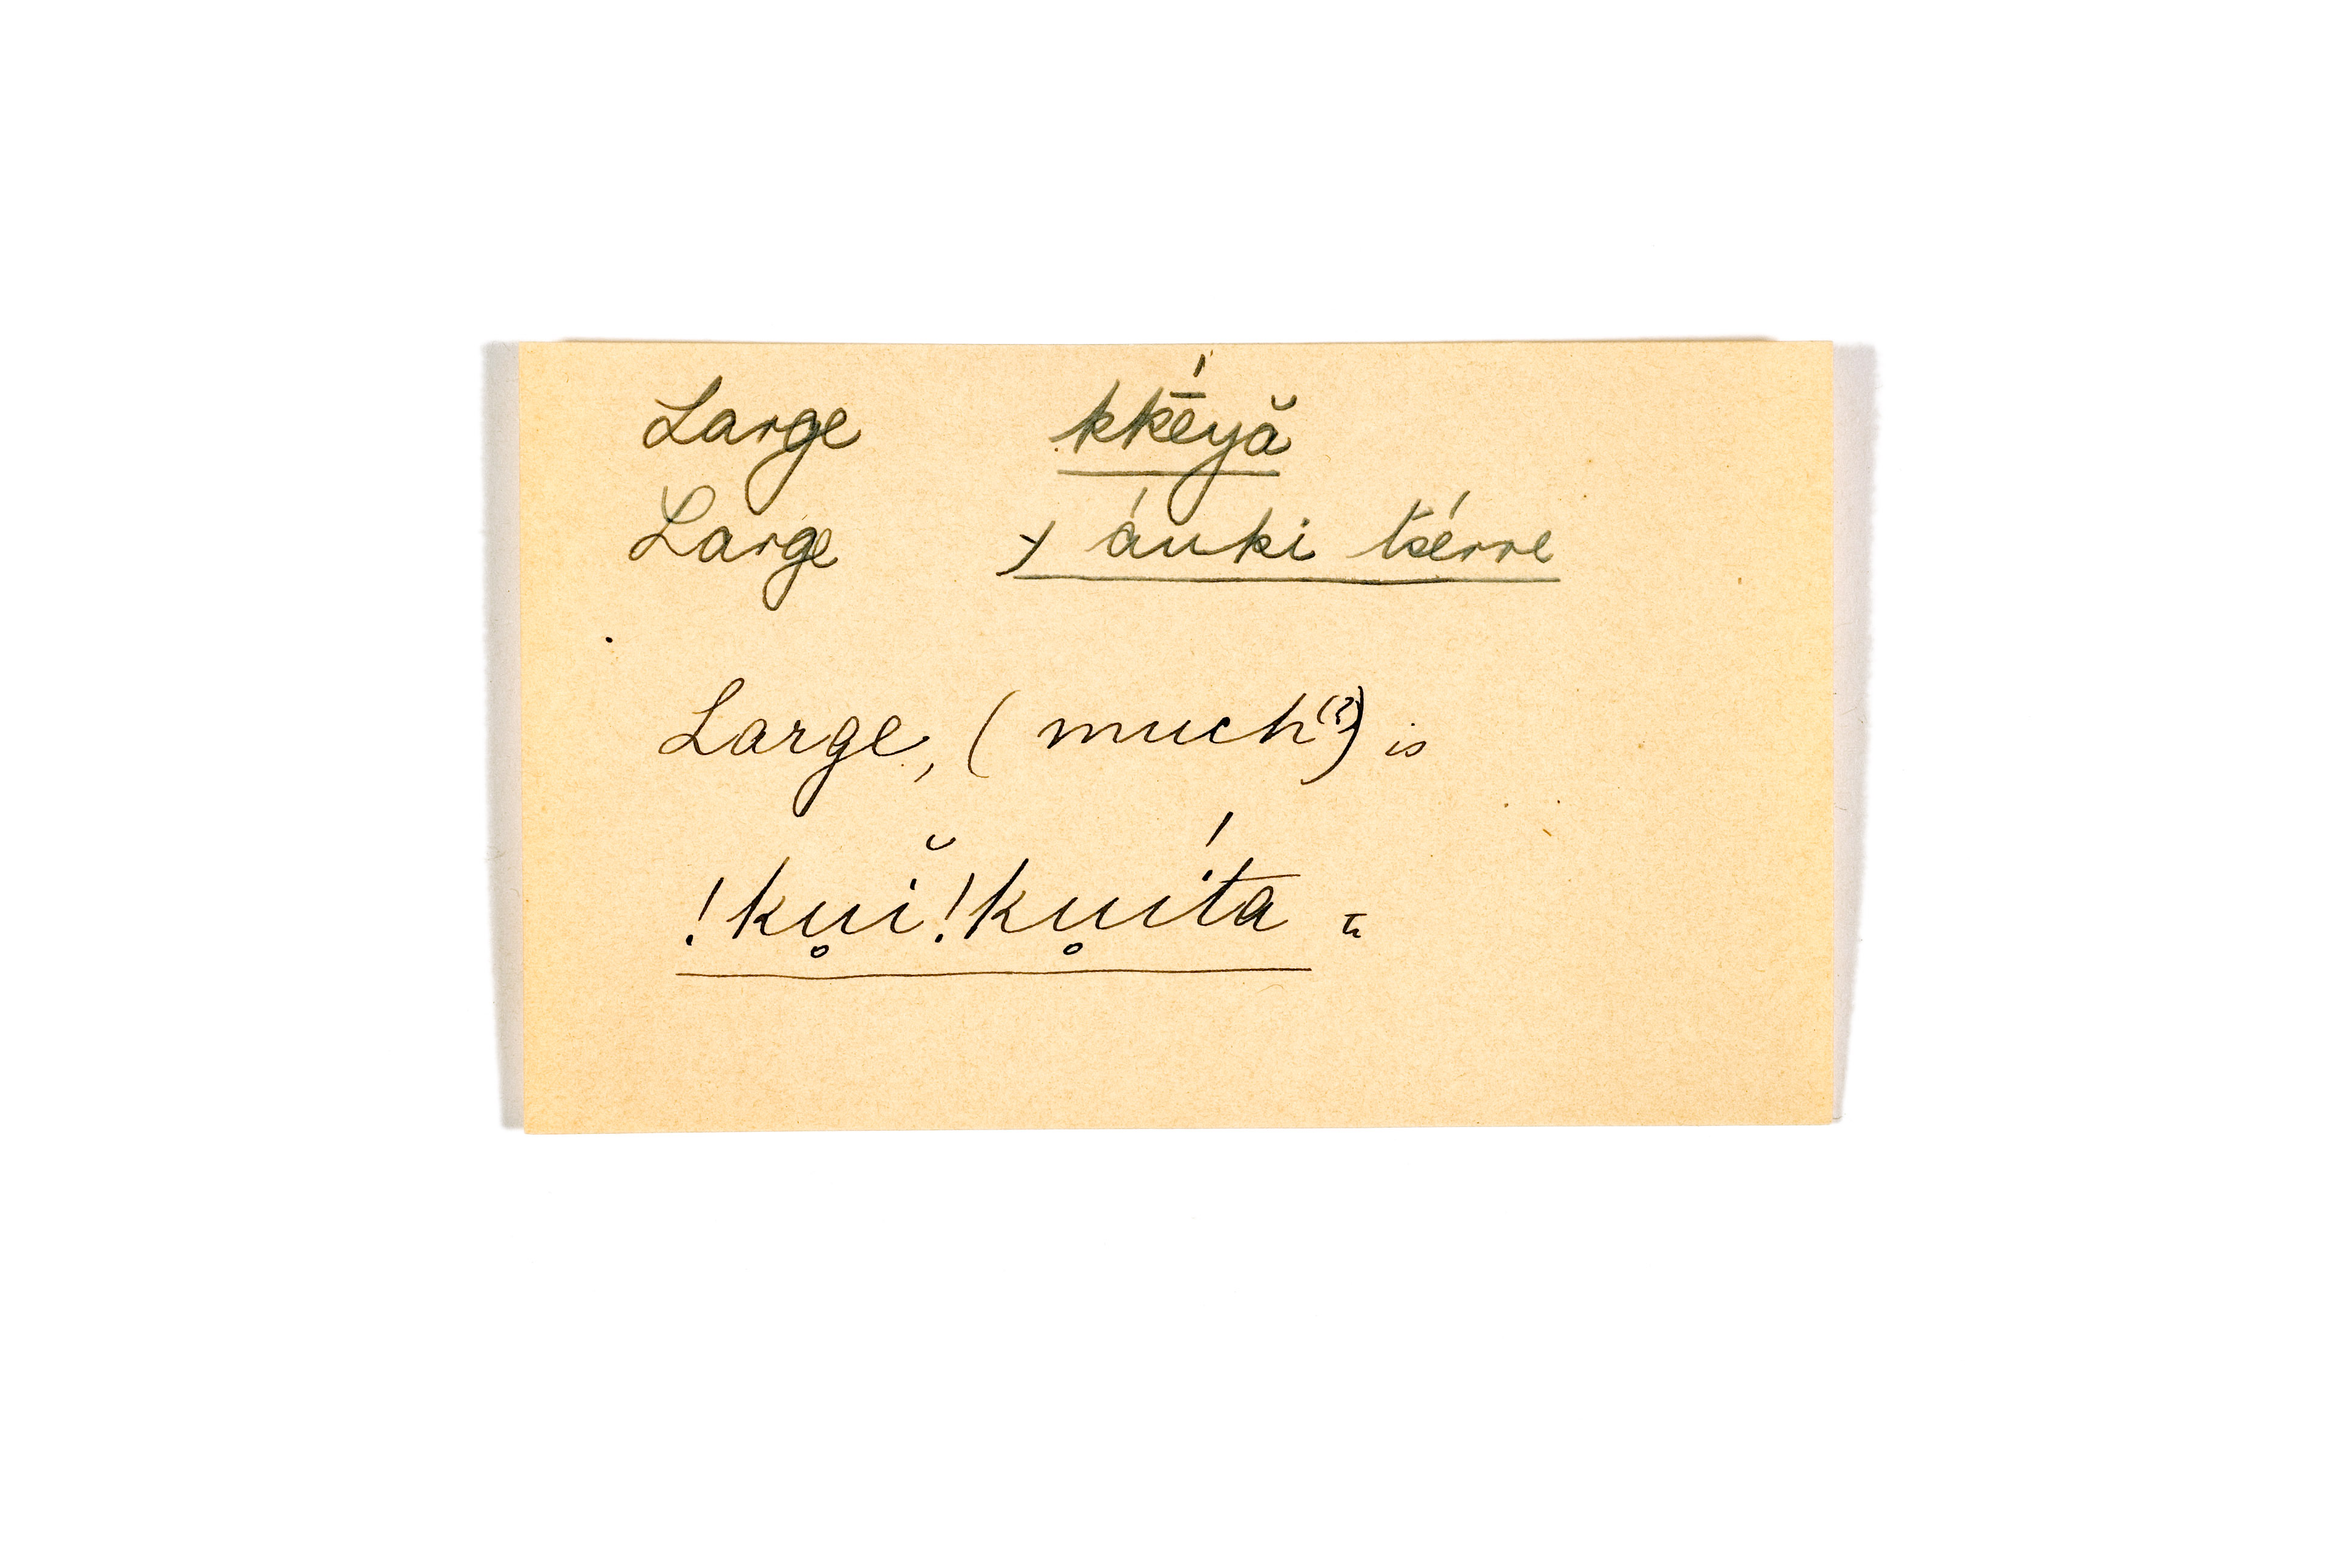 Large kkḗyă
Large ҂ áuki tsérre
Large, (much(?)) is
!ku̥ĭ!ku̥íta ū